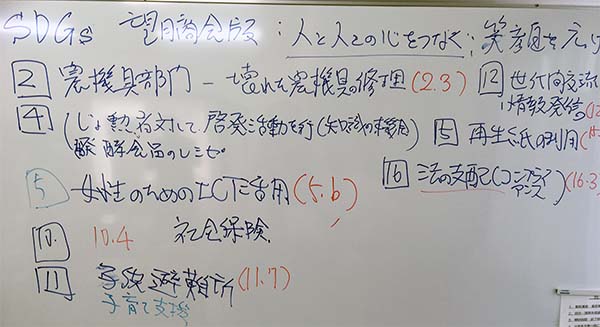 SDGs 望月商会版:人と人との心をつなぐ:笑顔を広げ
2 農機具部門 - 壊れた農機具の修理(2.3)
4 (しょ 対して、啓発活動を行
醗酵食品のレシピ
5 女性のためのICT活用(5.b)
10. 10.4 社会保険
11 避難所(11.7)
子育て支援
12 世代間交流
情報発信。(12
15 再生紙の利用(15
16 法の支配(コンプライアンス)(16.3